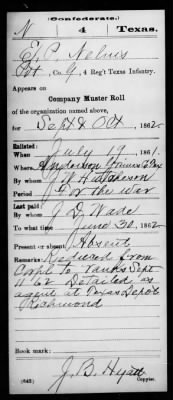 (Confederate.)
N 4 Texas.
E. P. Nelms
Pvt, Co. G, 4 Reg't Texas Infantry.
Appears on
Company Muster Roll
of the organization named above,
for Sept & Oct, 1862.
Enlisted:
When July 19, 1861.
Where Anderson Grimes Co Tex
By whom J. W. Hutcheson
Period For the war
Last paid:
By whom J. D. Wade
To what time June 30, 1862.
Present or absent Absent
Remarks: Reduced from
Corpl to ranks Sept
11 '62 Detailed as
agent at Texas Depot
Richmond
Book mark:
J. B. Hyatt
(642) Copyist.